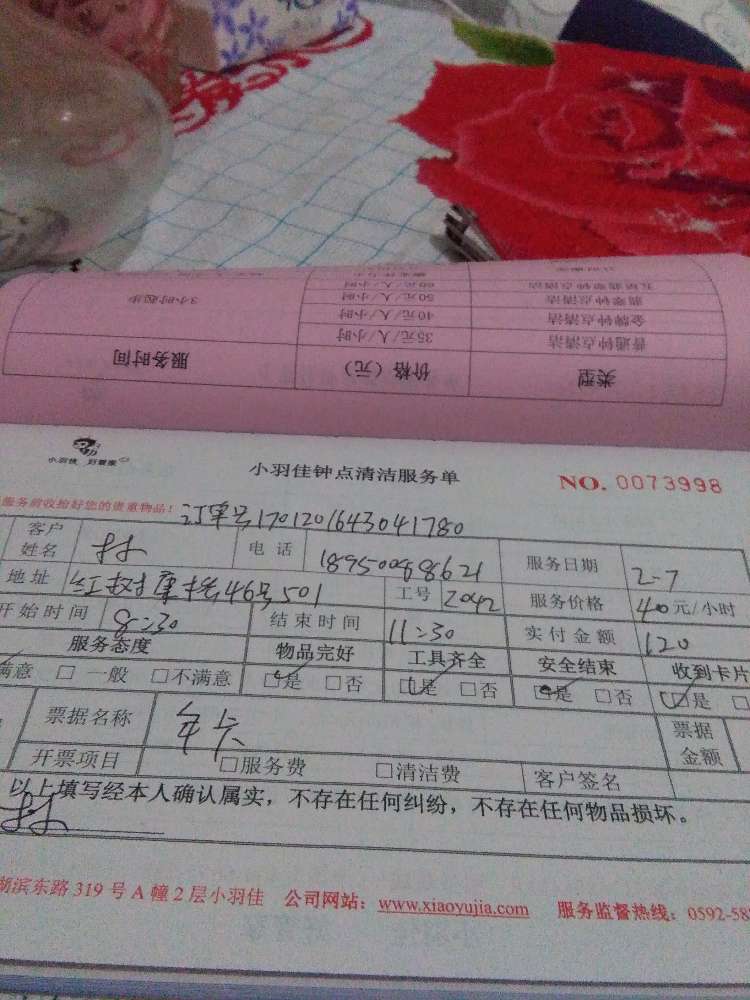 类型 价格（元） 服务时间
普通钟点清洁 35元/人/小时
金牌钟点清洁 40元/人/小时 3小时起步
翡翠钟点清洁 50元/人/小时
60元/人/小时
小羽佳 好管家
小羽佳钟点清洁服务单
NO. 0073998
服务前收拾好您的贵重物品！
订单号1701201643041780
客户姓名 林 电话 服务日期 2-7
地址 46号501 工号 2042 服务价格 40元/小时
开始时间 8:30 结束时间 11:30 实付金额 120
服务态度 物品完好 工具齐全 安全结束 收到卡片
满意 □一般 □不满意 □是 □否 □是 □否 □是 □否 □是 □
票据名称 年卡 票据金额
开票项目 □服务费 □清洁费 客户签名
以上填写经本人确认属实，不存在任何纠纷，不存在任何物品损坏。
林
湖滨东路319号A幢2层小羽佳 公司网站：www.xiaoyujia.com 服务监督热线：0592-58